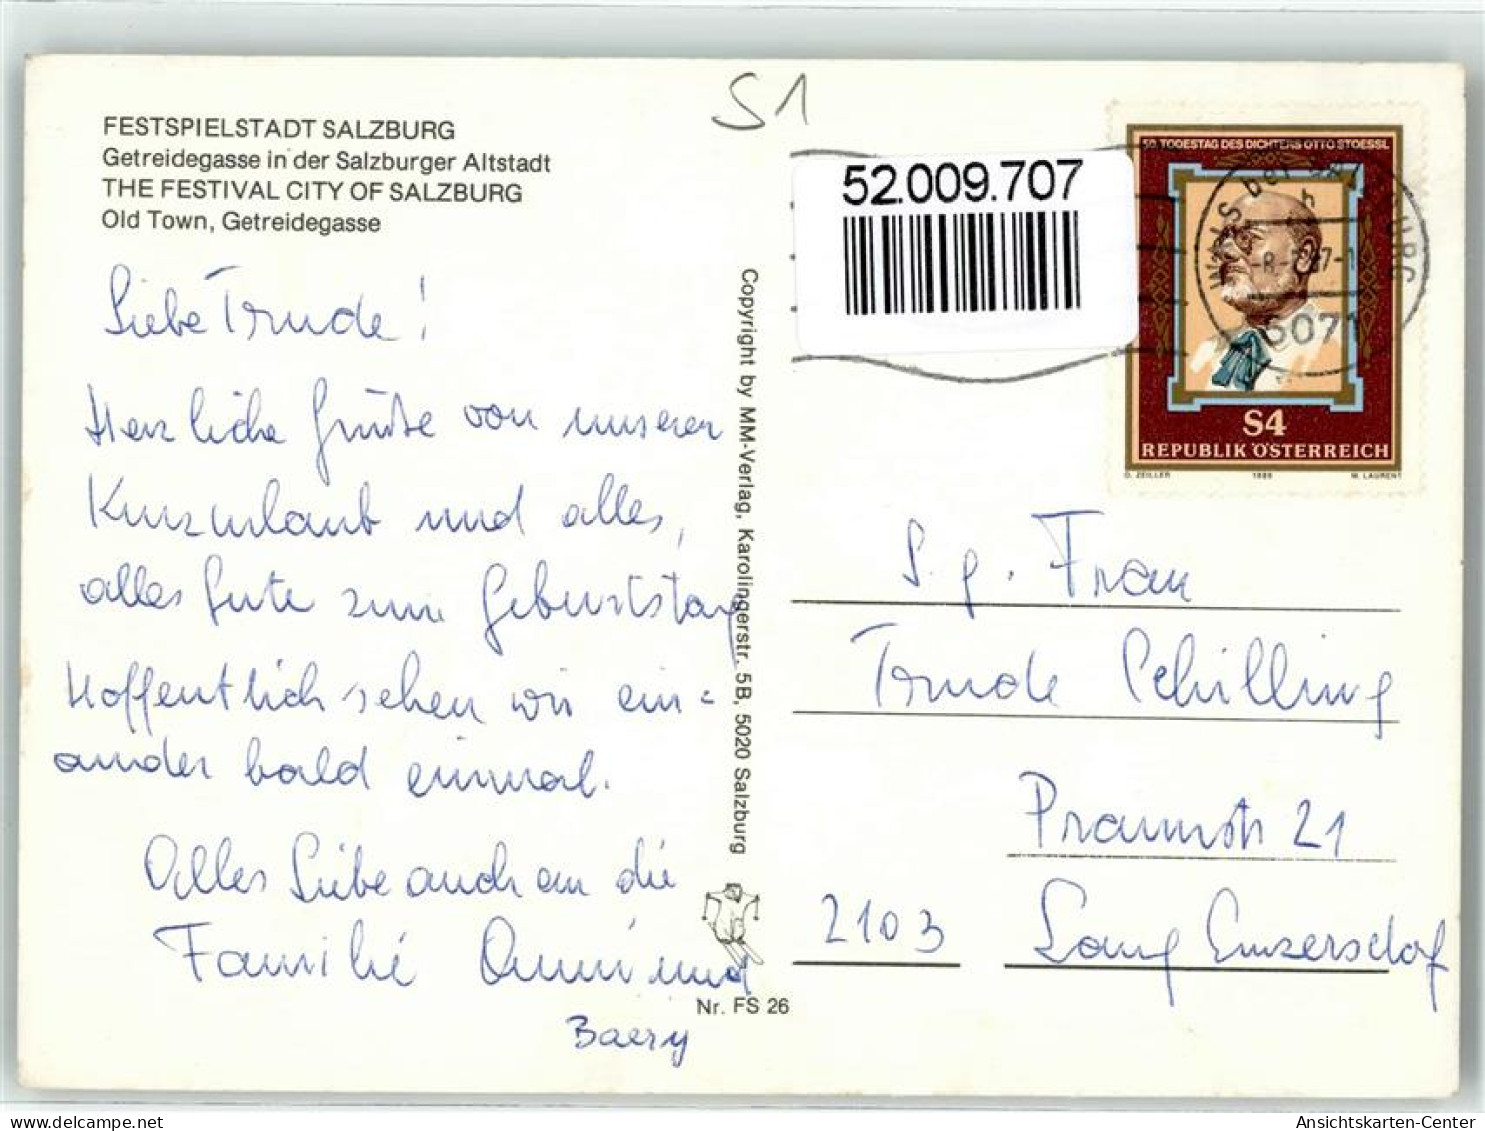 S1
FESTSPIELSTADT SALZBURG
Getreidegasse in der Salzburger Altstadt
THE FESTIVAL CITY OF SALZBURG
Old Town, Getreidegasse
Liebe Trude!
Herzliche Grüße von unserer
Kurzurlaub und alles,
alles Gute zum Geburtstag
Hoffentlich sehen wir ein=
ander bald einmal.
Alles Liebe auch an die
Familie
und
Baery
Copyright by MM-Verlag, Karolingerstr. 5B, 5020 Salzburg
Nr. FS 26
52.009.707
50. TODESTAG DES DICHTERS OTTO STOESSL
WALS bei SALZBURG
5071
S4
REPUBLIK ÖSTERREICH
O. ZEILLER 1986 W. LAURENT
S. g. Frau
Trude Schilling
Praunstr 21
2103 Lang Enzersdorf
Ansichtskarten-Center